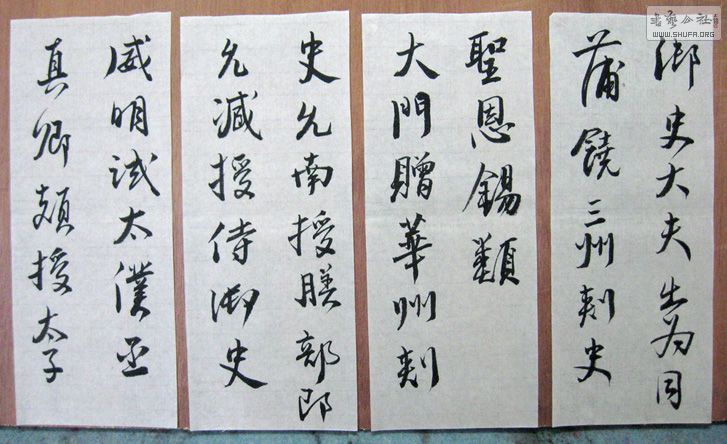 御史大夫出為同
蒲饒三州刺史
聖恩錫類
大門贈華州刺
史允南授膳部郎
允減授侍御史
威明試太僕丞
真卿頗授太子
書藝公社
WWW.SHUFA.ORG